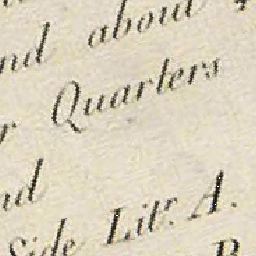 nd about
r Quarters
nd
Side Litr. A.